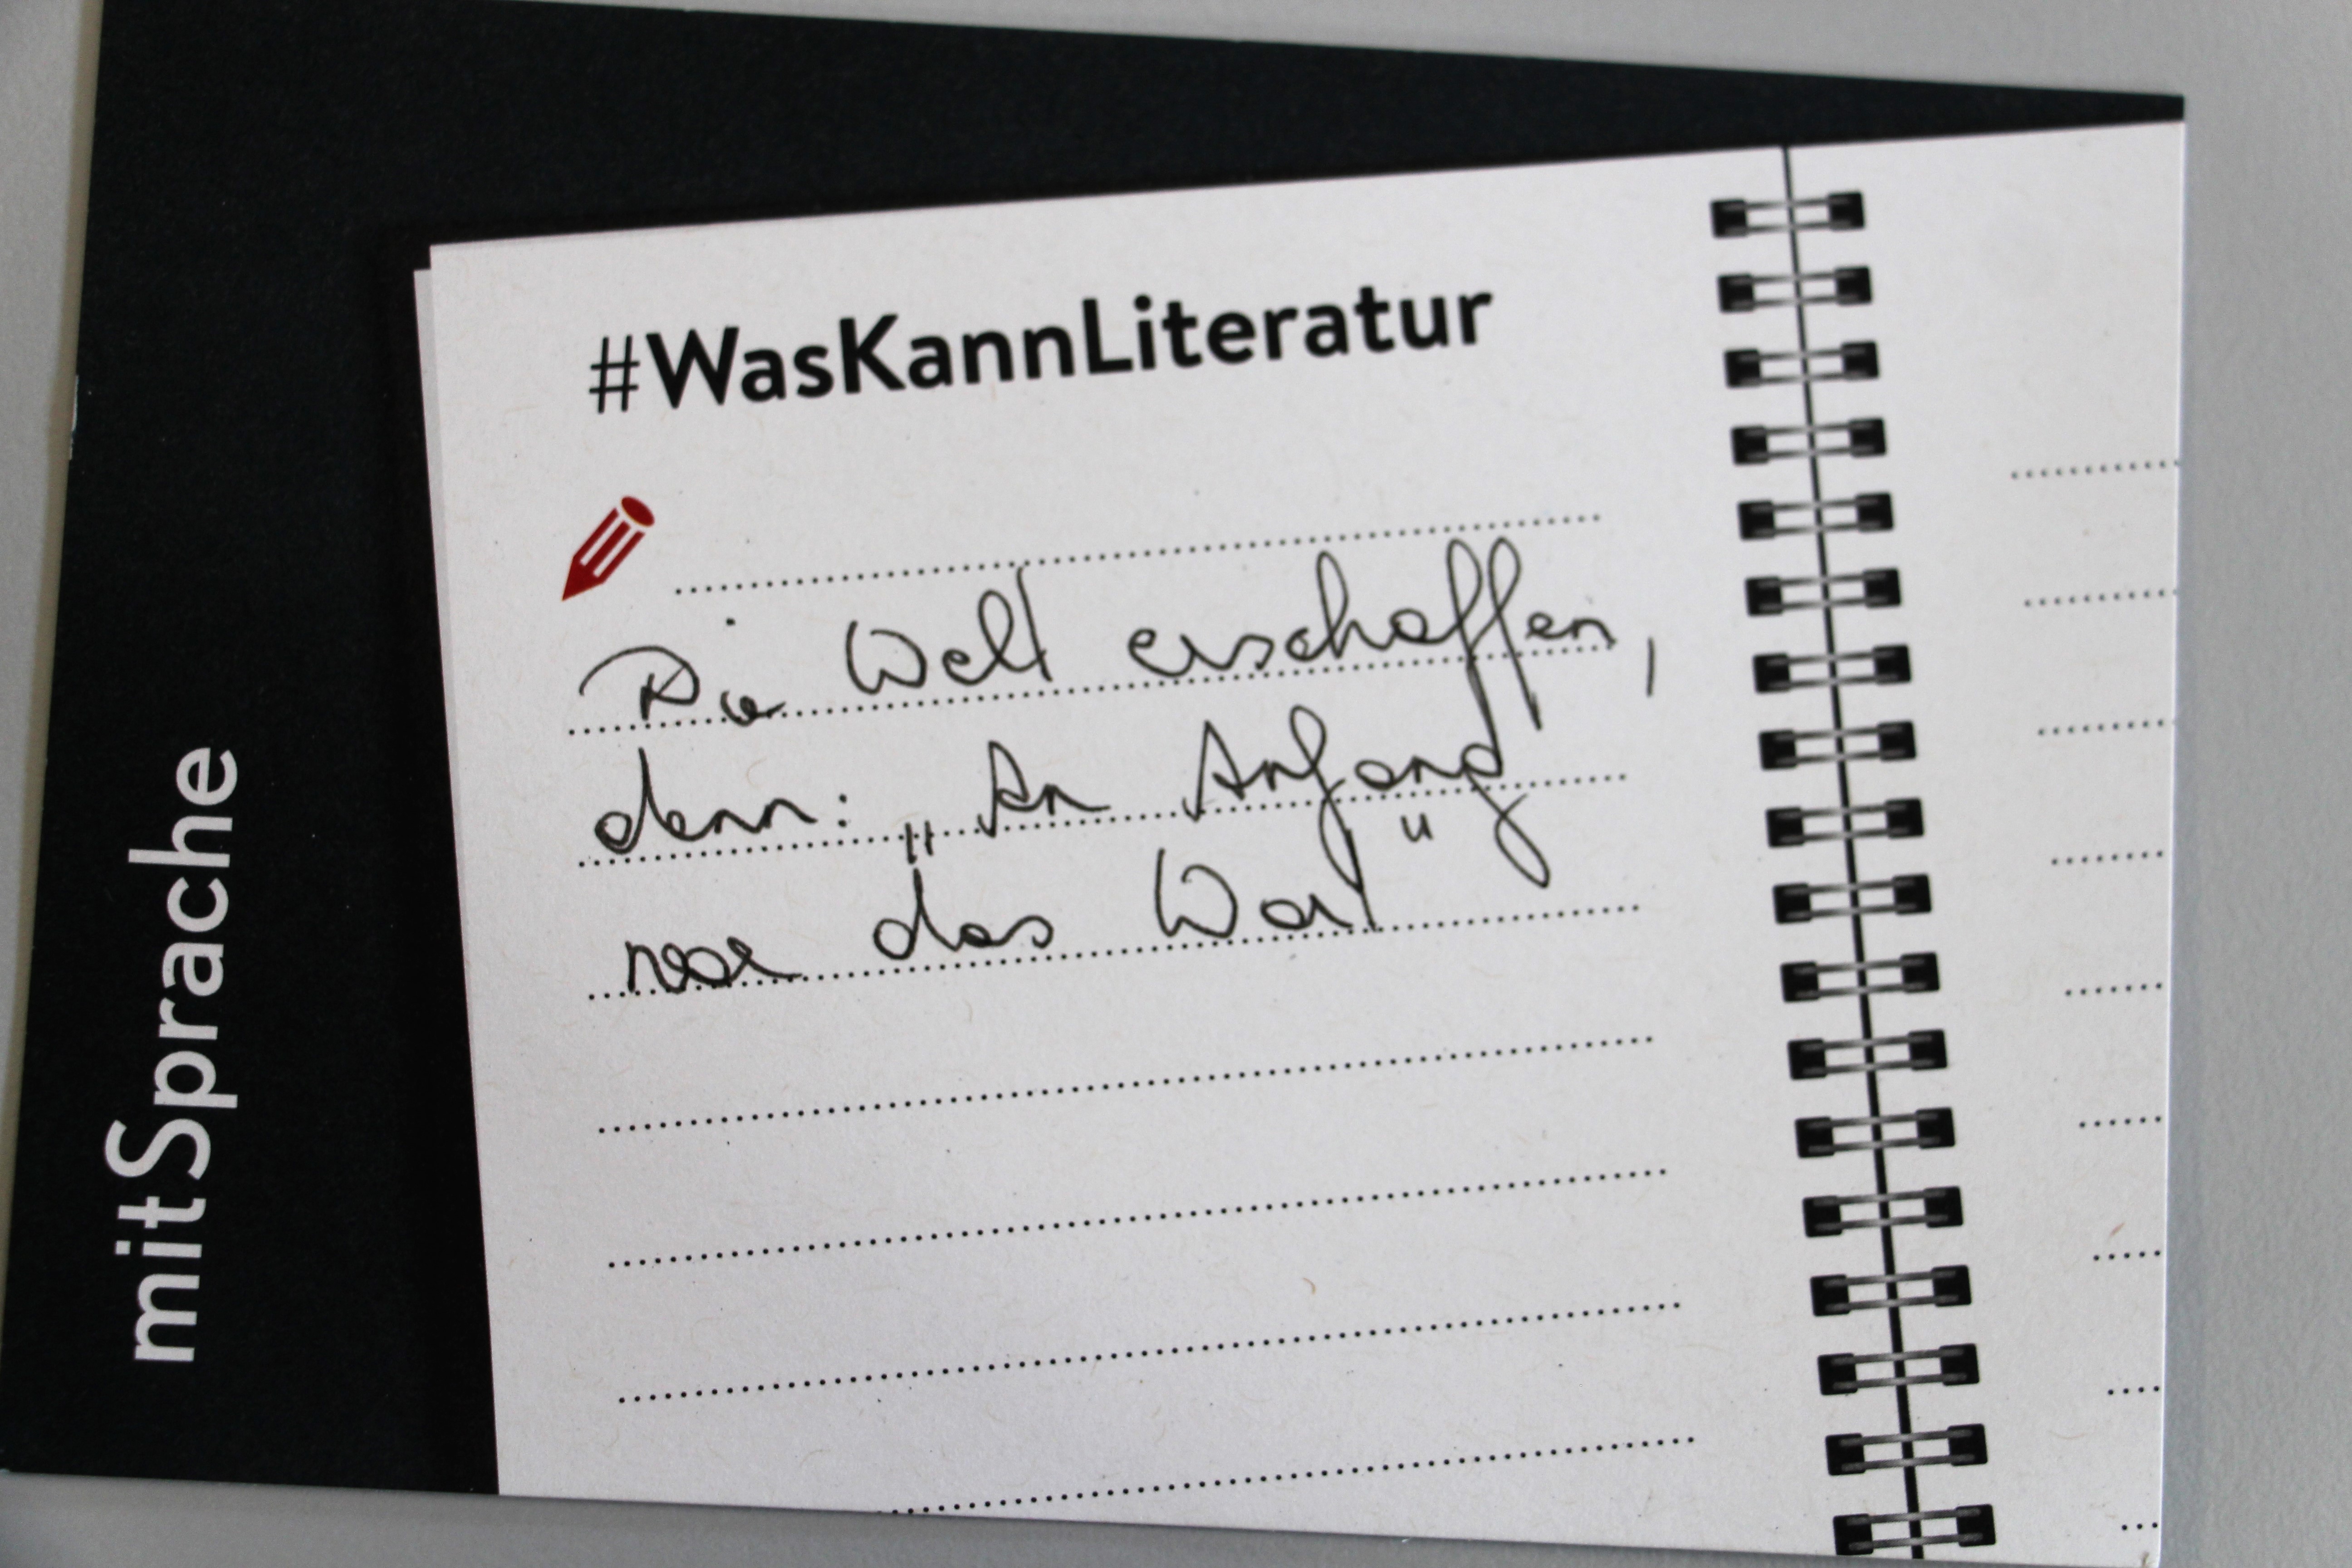 mitSprache
#WasKannLiteratur
Die Welt erschaffen,
denn: „Am Anfang
war das Wort"